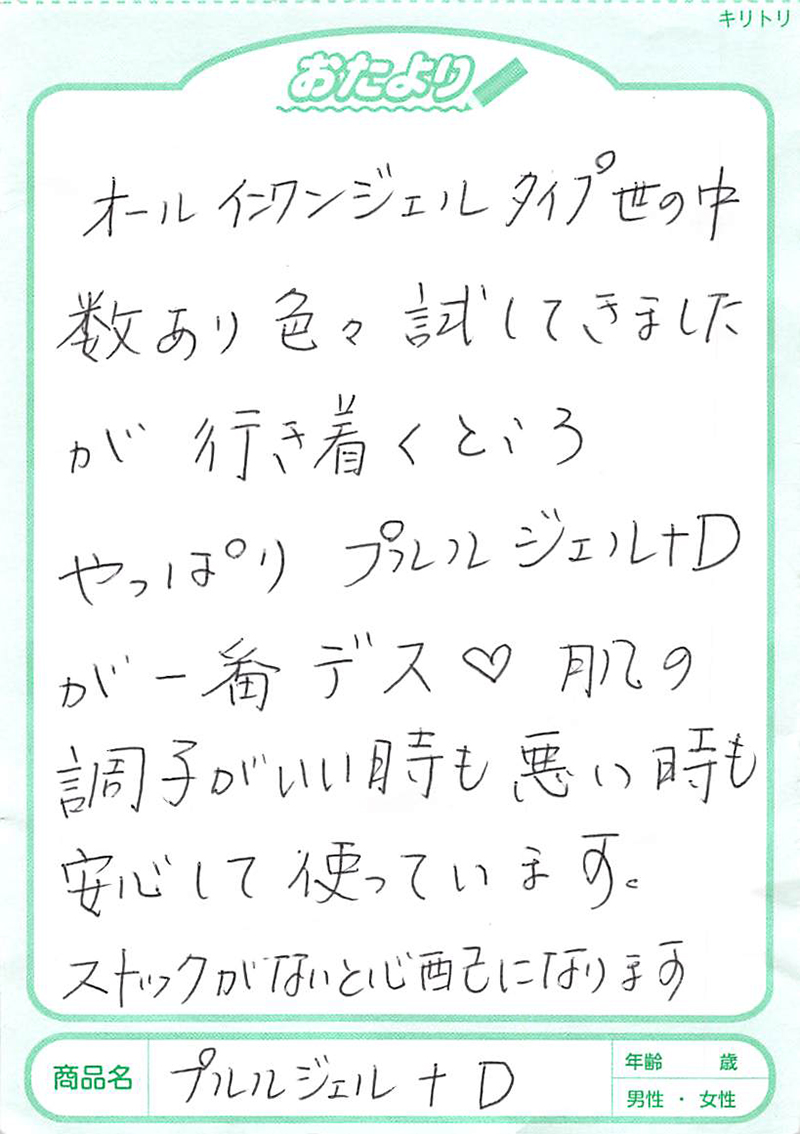 キリトリ
おたより
オールインワンジェルタイプ世の中
数あり色々試してきました
が 行き着くところ
やっぱり プルルジェル+D
が一番デス♡ 肌の
調子がいい時も悪い時も
安心して使っています。
ストックがないと心配になります
商品名 プルルジェル+D 年齢 歳
男性・女性